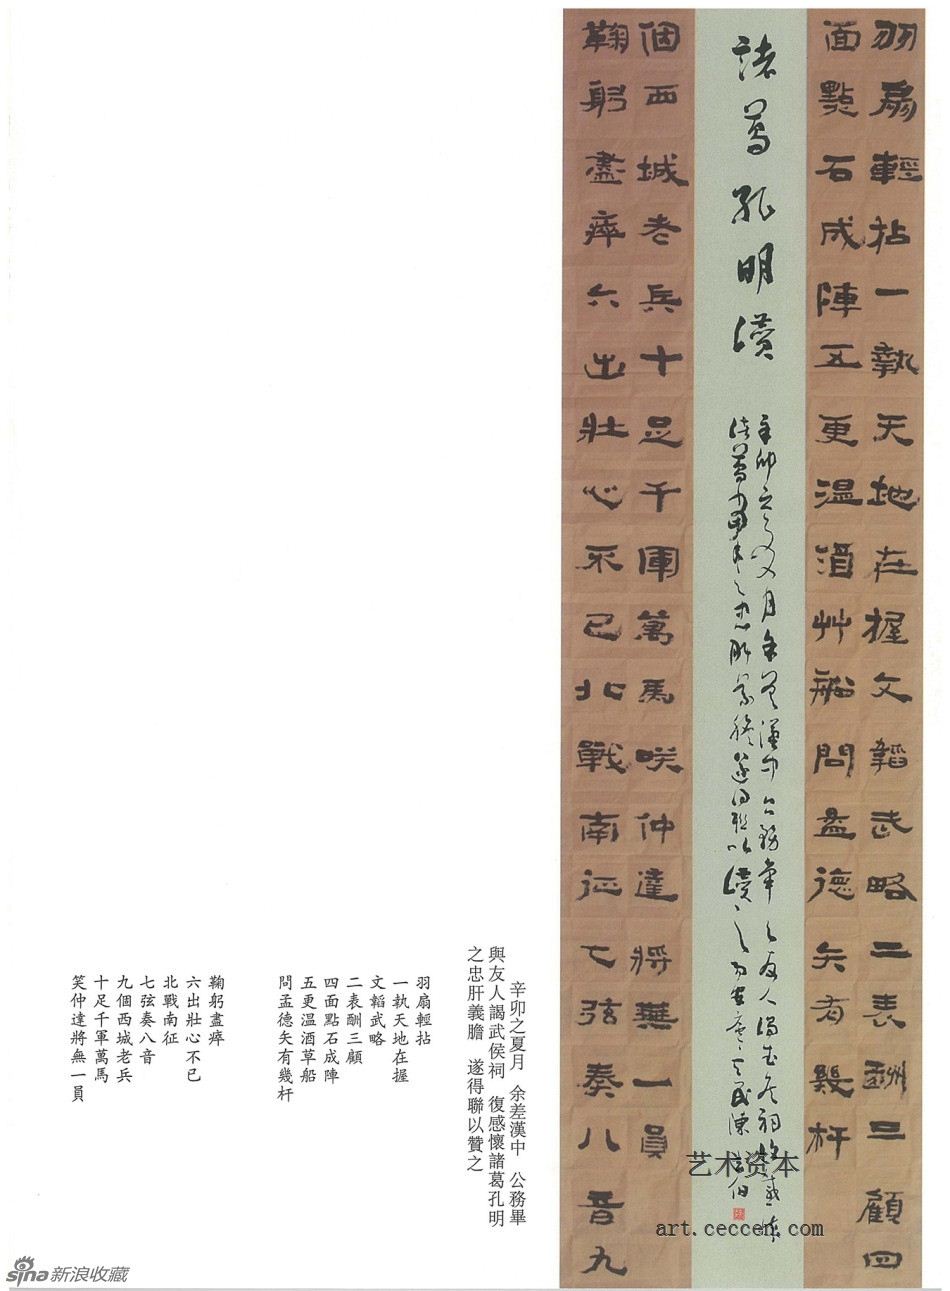 羽扇輕拈一執天地在握文韜武略二表酬三顧四
面點石成陣五更溫酒艸船問孟德矢有幾杆
諸葛孔明讚
鞠躬盡瘁六出壯心不已北戰南征七弦奏八音九
個西城老兵十足千軍萬馬咲仲達將無一員
辛卯之夏月 余差漢中 公務畢
與友人謁武侯祠 復感懷諸葛孔明
之忠肝義膽 遂得聯以贊之
羽扇輕拈
一執天地在握
文韜武略
二表酬三顧
四面點石成陣
五更溫酒草船
問孟德矢有幾杆
鞠躬盡瘁
六出壯心不已
北戰南征
七弦奏八音
九個西城老兵
十足千軍萬馬
笑仲達將無一員
艺术资本
art.ceccen.com
sina新浪收藏